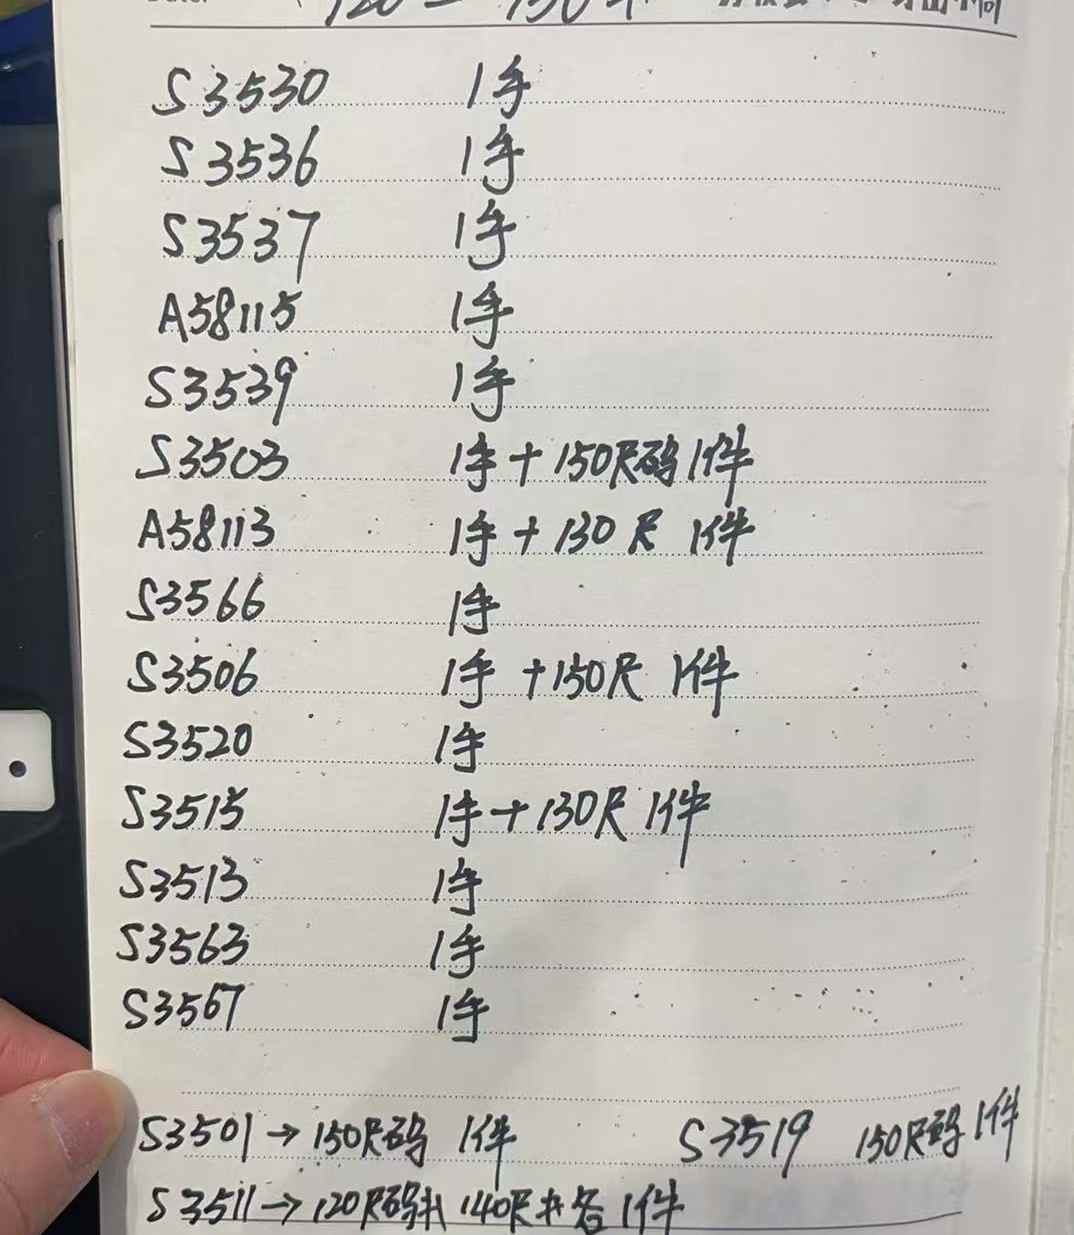 S3530 1手
S3536 1手
S3537 1手
A58115 1手
S3539 1手
S3503 1手+150尺码1件
A58113 1手+130尺 1件
S3566 1手
S3506 1手 +150尺 1件
S3520 1手
S3515 1手+130尺 1件
S3513 1手
S3563 1手
S3567 1手
S3501→150尺码 1件 S3519 150尺码1件
S3511→120尺码 140尺 各1件